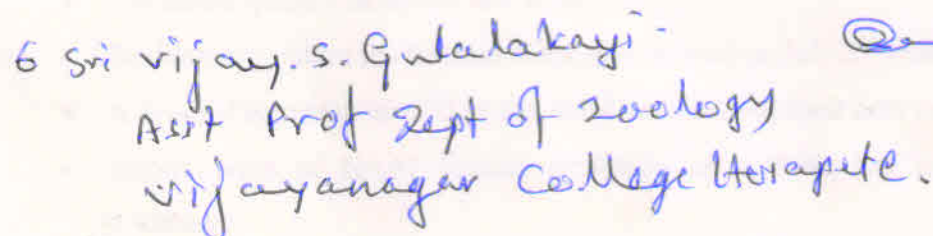 6 Sri Vijay. S. Gulalakayi.
Asst Prof Dept of Zoology
Vijayanagar College Hosapete.